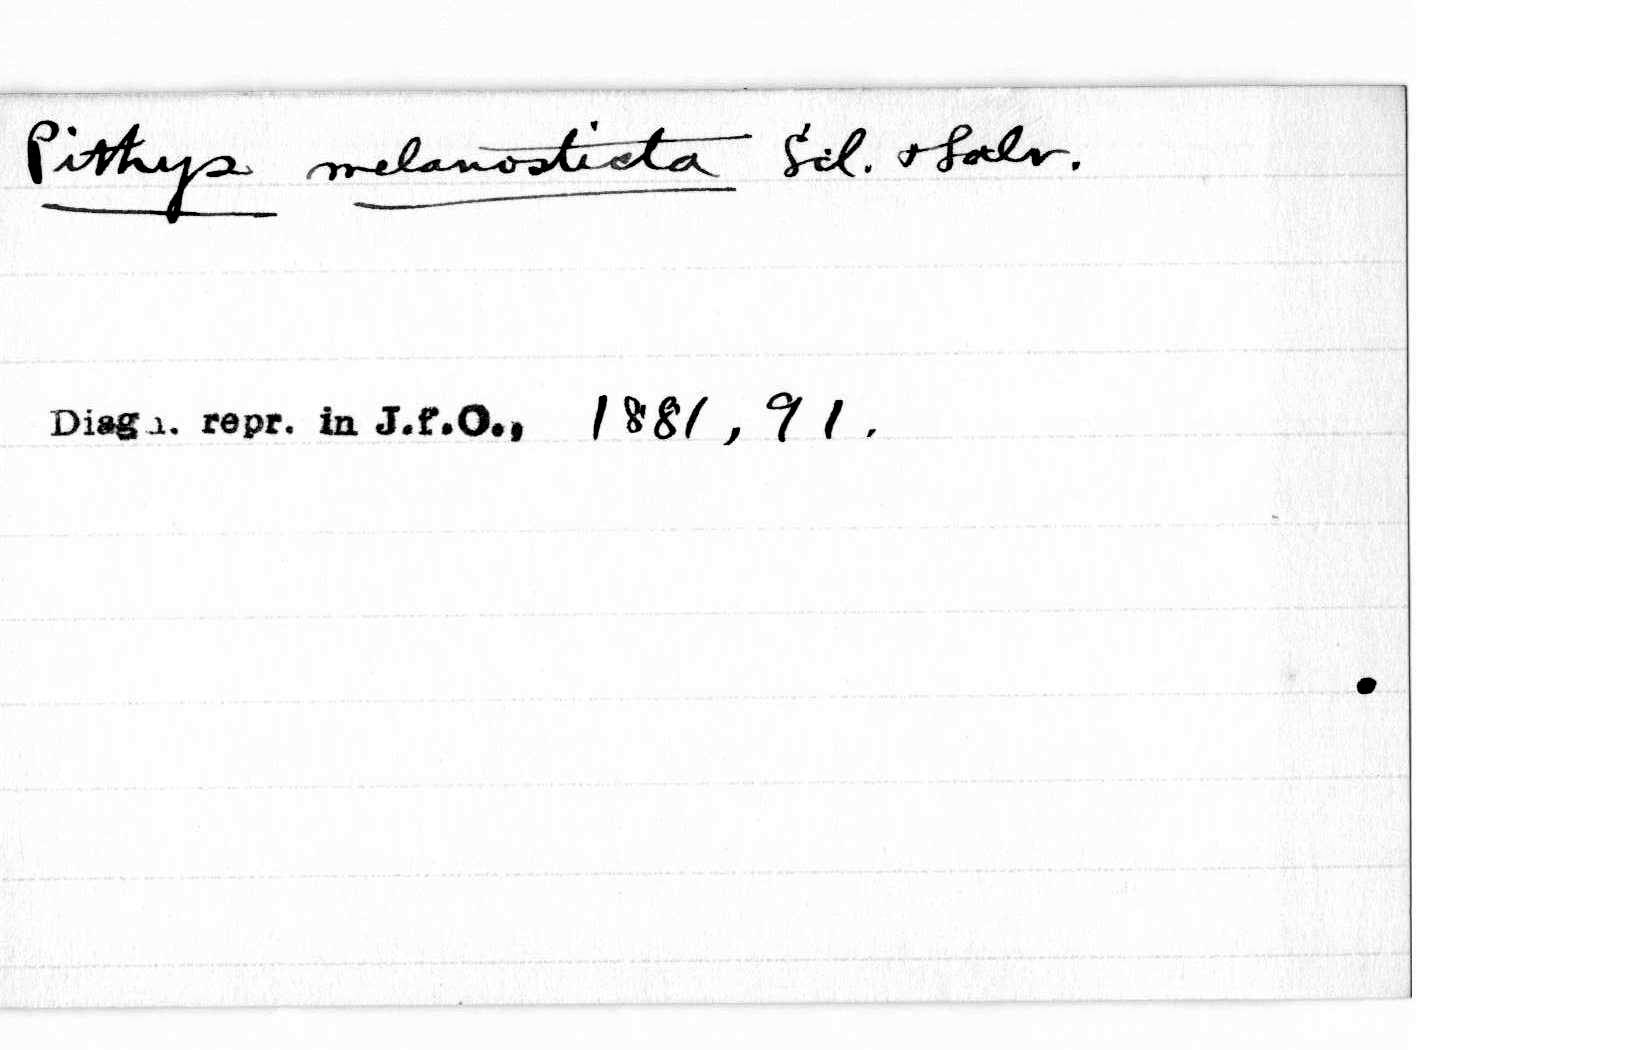 Pithys melanosticta Scl. + Salv.
Diagn. repr. in J.f.O., 1881, 91.